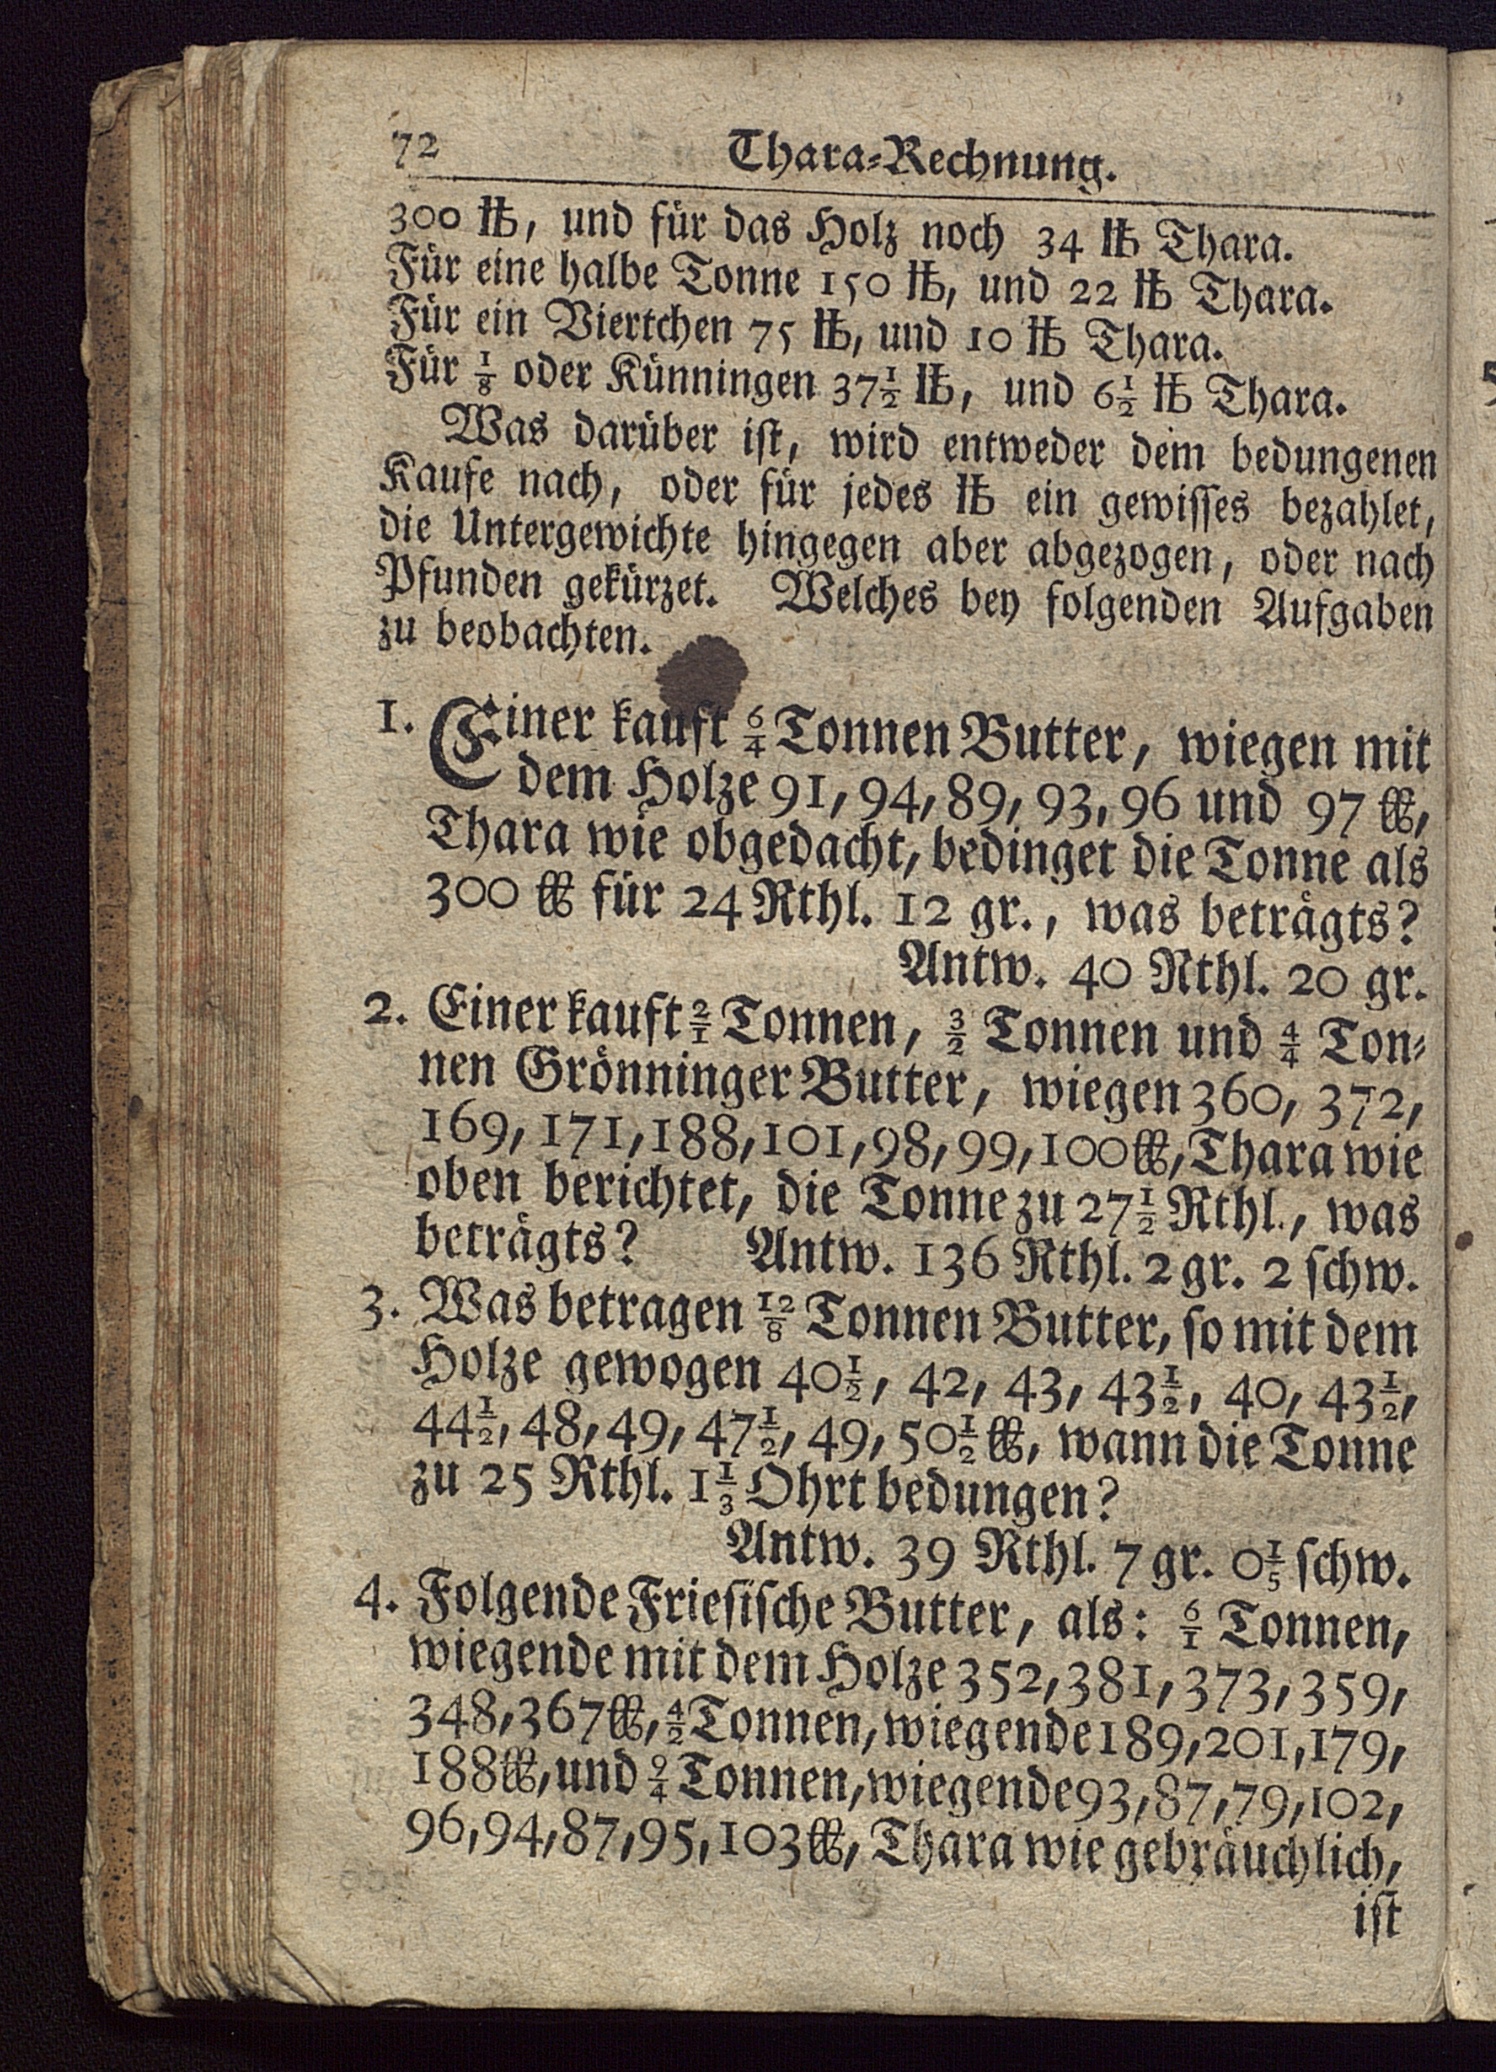 72 Thara-Rechnung.
300 ℔, und für das Holz noch 34 ℔ Thara.
Für eine halbe Tonne 150 ℔, und 22 ℔ Thara.
Für ein Viertchen 75 ℔, und 10 ℔ Thara.
Für 1/8 oder Künningen 37 1/2 ℔, und 6 1/2 ℔ Thara.
Was darüber iſt, wird entweder dem bedungenen
Kaufe nach, oder für jedes ℔ ein gewiſſes bezahlet,
die Untergewichte hingegen aber abgezogen, oder nach
Pfunden gekürzet. Welches bey folgenden Aufgaben
zu beobachten.
1. Einer kauft 6/4 Tonnen Butter, wiegen mit
dem Holze 91, 94, 89, 93, 96 und 97 ℔,
Thara wie obgedacht, bedinget die Tonne als
300 ℔ für 24 Rthl. 12 gr., was beträgts?
Antw. 40 Rthl. 20 gr.
2. Einer kauft 2/1 Tonnen, 3/2 Tonnen und 4/4 Ton-
nen Grönninger Butter, wiegen 360, 372,
169, 171, 188, 101, 98, 99, 100 ℔, Thara wie
oben berichtet, die Tonne zu 27 1/2 Rthl., was
beträgts? Antw. 136 Rthl. 2 gr. 2 ſchw.
3. Was betragen 12/8 Tonnen Butter, ſo mit dem
Holze gewogen 40 1/2, 42, 43, 43 1/2, 40, 43 1/2,
44 1/2, 48, 49, 47 1/2, 49, 50 1/2 ℔, wann die Tonne
zu 25 Rthl. 1 1/3 Ohrt bedungen?
Antw. 39 Rthl. 7 gr. 0 1/5 ſchw.
4. Folgende Frieſiſche Butter, als: 6/1 Tonnen,
wiegende mit dem Holze 352, 381, 373, 359,
348, 367 ℔, 4/2 Tonnen, wiegende 189, 201, 179,
188 ℔, und 9/4 Tonnen, wiegende 93, 87, 79, 102,
96, 94, 87, 95, 103 ℔, Thara wie gebräuchlich,
iſt